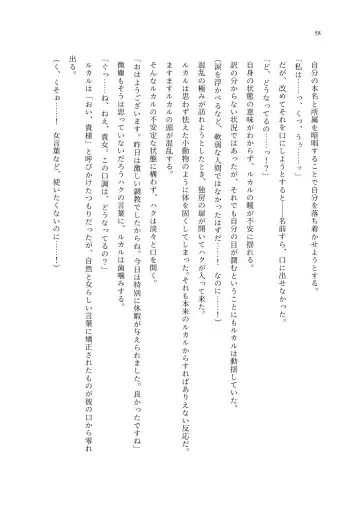 58
自分の本名と所属を暗唱することで自分を落ち着かせようとする。
「私は……っ、く、うぅ……ッ」
だが、改めてそれを口にしようとすると――名前すら、口に出せなかった。
「ど、どうなってるの……っ!?」
自身の状態の意味がわからず、ルカルの瞳が不安に揺れる。
訳の分からない状況ではあったが、それでも自分の目が潤むということにもルカルは動揺していた。
(涙を浮かべるなど、軟弱な人間ではなかったはずだ……! なのに……!)
混乱の極みが訪れようとしたとき、独房の扉が開いてハクが入って来た。
ルカルは思わず怯えた小動物のように体を固くしてしまった。それも本来のルカルからすればありえない反応だ。
ますますルカルの頭が混乱する。
そんなルカルの不安定な状態に構わず、ハクは淡々と口を開く。
「おはようございます。昨日は激しい調教でしたからね。今日は特別に休暇が与えられました。良かったですね」
微塵もそうは思っていないだろうハクの言葉に、ルカルは歯噛みする。
「ぐっ……ね、ねえ、貴女。この口調は、どうなってるの?」
ルカルは「おい、貴様」と呼びかけたつもりだったが、自然と女らしい言葉に矯正されたものが彼の口から零れ
出る。
(く、くそぉ……! 女言葉など、使いたくないのに……!)